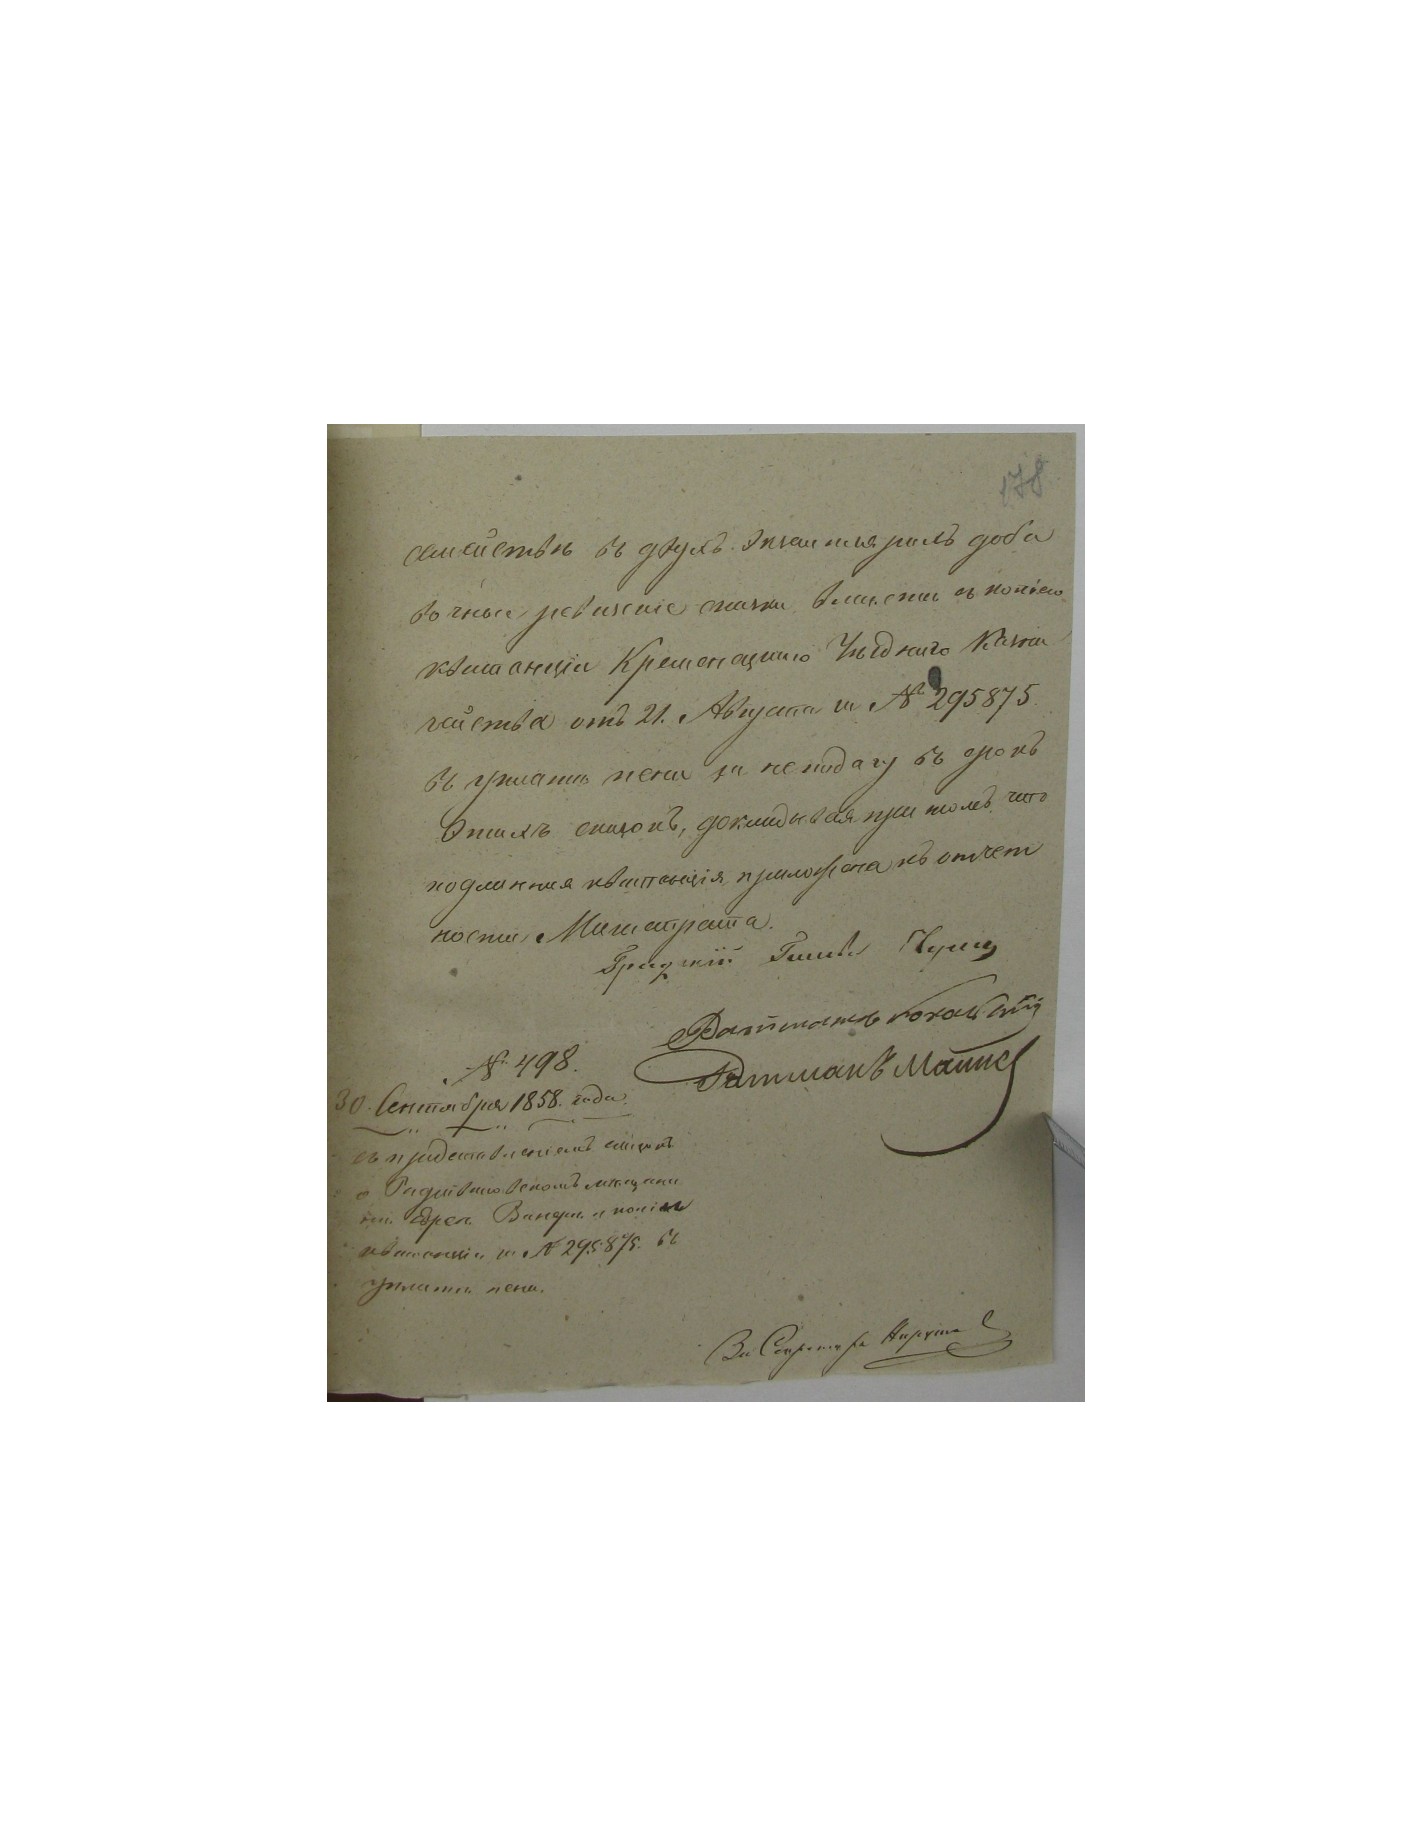 178
семействѣ въ двухъ экземплярахъ доба
вочные ревизские сказки вместѣ съ копiею
квитанцiи Кременецкаго Уѣзднаго Казна
чейства отъ 21. Августа за № 295875.
въ уплатѣ пени за неподачу въ срокъ
этихъ сказокъ, докладывая при томъ что
подлинная квитанцiя приложена къ отчет
ности Магистрата.
Градскiй Глава
Ратманъ
Ратманъ
№ 498.
30. Сентября 1858. года.
съ представленiемъ сказокъ
о Радзивиловскомъ мещани
нѣ Евреѣ и копiи
квитанцiи за № 295875. въ
уплатѣ пени.
За Секретаря